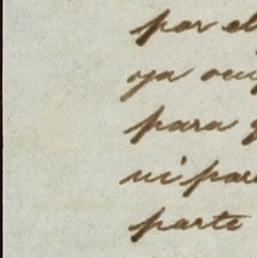 por el
ya ocu
para q
ni para
parte